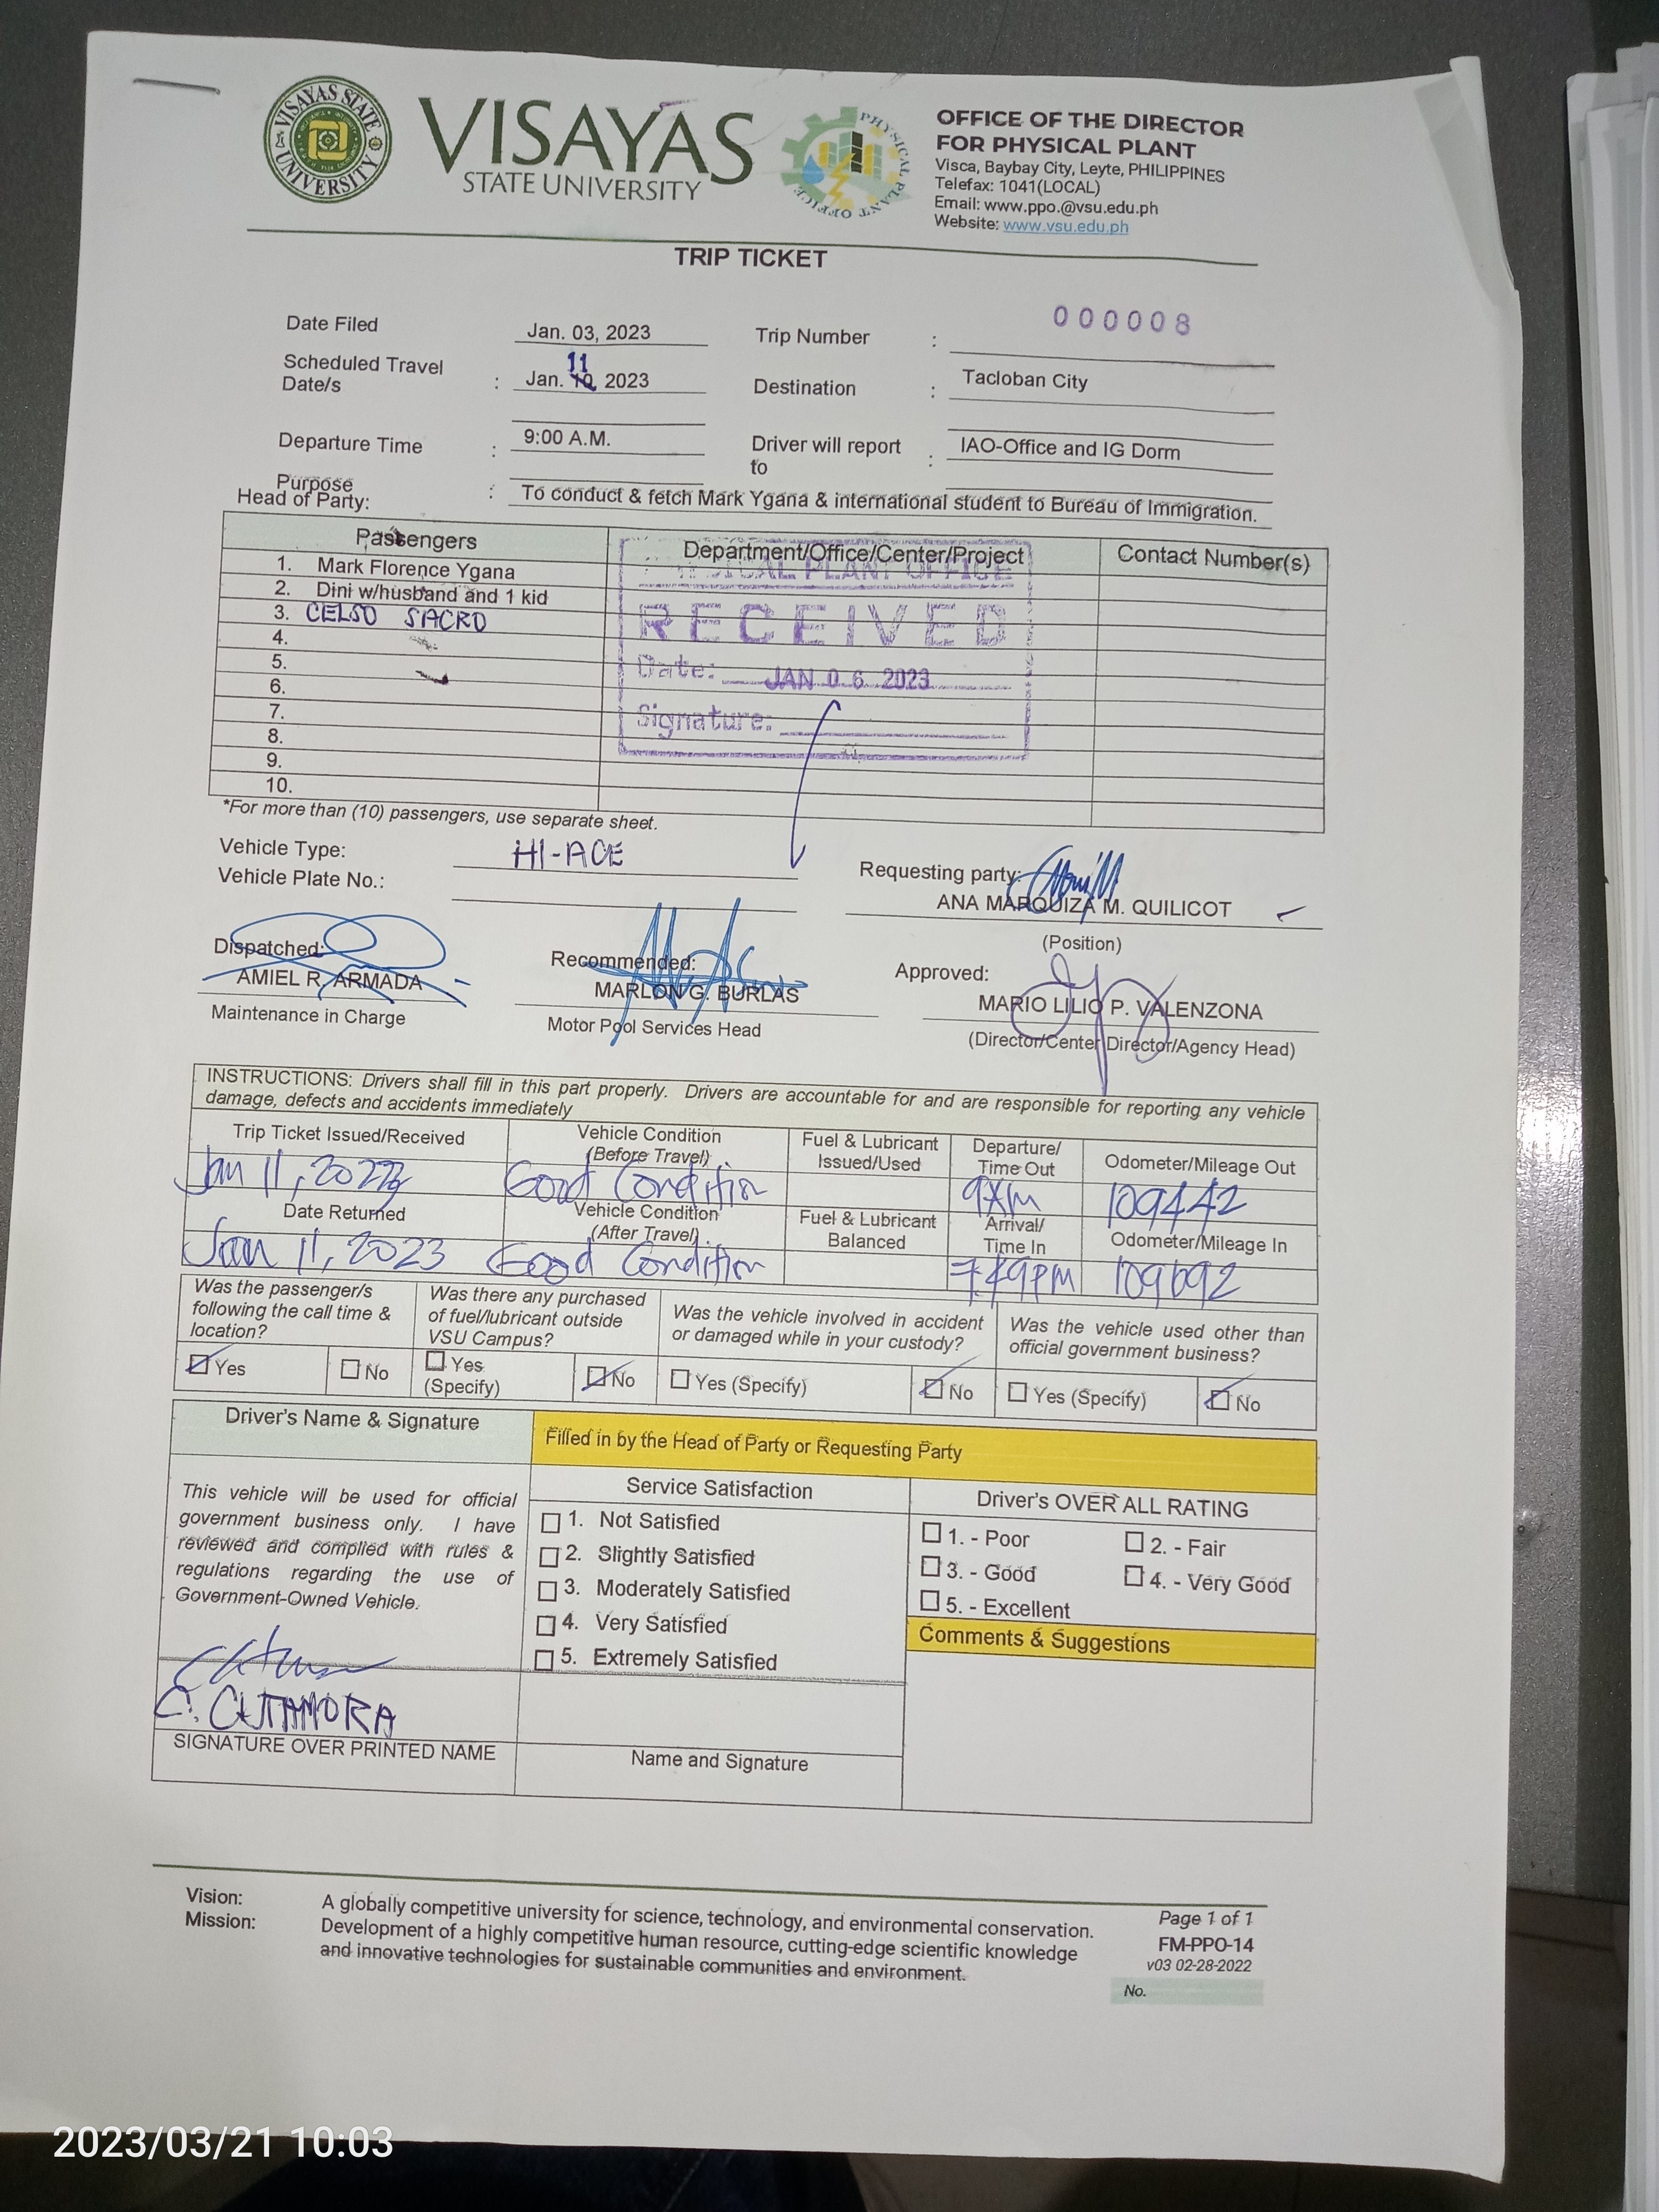 VISAYAS STATE UNIVERSITY
VISAYAS
STATE UNIVERSITY
PHYSICAL PLANT OFFICE
OFFICE OF THE DIRECTOR
FOR PHYSICAL PLANT
Visca, Baybay City, Leyte, PHILIPPINES
Telefax: 1041(LOCAL)
Email: www.ppo.@vsu.edu.ph
Website: www.vsu.edu.ph
TRIP TICKET
Date Filed Jan. 03, 2023 Trip Number : 000008
Scheduled Travel Date/s : Jan. 11, 2023 Destination : Tacloban City
Departure Time : 9:00 A.M. Driver will report to : IAO-Office and IG Dorm
Purpose : To conduct & fetch Mark Ygana & international student to Bureau of Immigration.
Head of Party:
Passengers Department/Office/Center/Project Contact Number(s)
1. Mark Florence Ygana
2. Dini w/husband and 1 kid
3. CELSO SACRO
4.
5.
6.
7.
8.
9.
10.
PHYSICAL PLANT OFFICE
RECEIVED
Date: JAN 06 2023
Signature:
*For more than (10) passengers, use separate sheet.
Vehicle Type: HI-ACE
Vehicle Plate No.:
Requesting party:
ANA MARQUIZA M. QUILICOT
(Position)
Dispatched: Recommended: Approved:
AMIEL R. ARMADA MARLON G. BURLAS MARIO LILIO P. VALENZONA
Maintenance in Charge Motor Pool Services Head (Director/Center Director/Agency Head)
INSTRUCTIONS: Drivers shall fill in this part properly. Drivers are accountable for and are responsible for reporting any vehicle
damage, defects and accidents immediately
Trip Ticket Issued/Received Vehicle Condition (Before Travel) Fuel & Lubricant Issued/Used Departure/ Time Out Odometer/Mileage Out
Jan 11, 2023 Good Condition 9AM 109442
Date Returned Vehicle Condition (After Travel) Fuel & Lubricant Balanced Arrival/ Time In Odometer/Mileage In
Jan 11, 2023 Good Condition 7:49PM 109692
Was the passenger/s following the call time & location? Was there any purchased of fuel/lubricant outside VSU Campus? Was the vehicle involved in accident or damaged while in your custody? Was the vehicle used other than official government business?
Yes No Yes (Specify) No Yes (Specify) No Yes (Specify) No
Driver's Name & Signature
Filled in by the Head of Party or Requesting Party
This vehicle will be used for official
government business only. I have
reviewed and complied with rules &
regulations regarding the use of
Government-Owned Vehicle.
C. CUTAMORA
SIGNATURE OVER PRINTED NAME
Service Satisfaction
1. Not Satisfied
2. Slightly Satisfied
3. Moderately Satisfied
4. Very Satisfied
5. Extremely Satisfied
Name and Signature
Driver's OVER ALL RATING
1. - Poor 2. - Fair
3. - Good 4. - Very Good
5. - Excellent
Comments & Suggestions
Vision: A globally competitive university for science, technology, and environmental conservation.
Mission: Development of a highly competitive human resource, cutting-edge scientific knowledge
and innovative technologies for sustainable communities and environment.
Page 1 of 1
FM-PPO-14
v03 02-28-2022
No.
2023/03/21 10:03